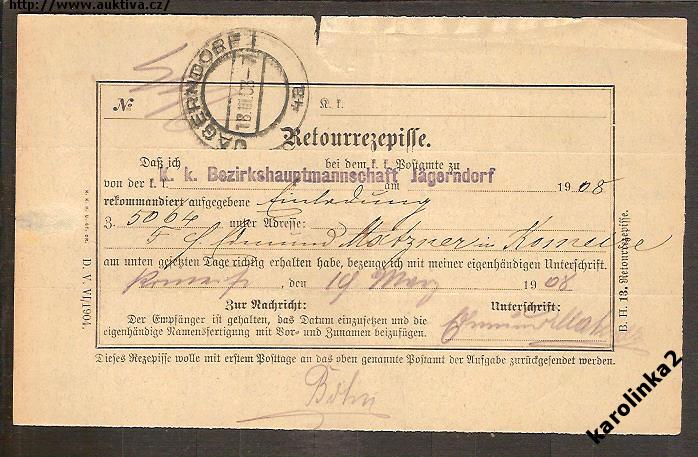 http://www.auktiva.cz/
JÄGERNDORF 1
18.III.08
4a
№
K. k.
Retourrezepisse.
Daß ich bei dem k. k. Postamte zu
K. k. Bezirkshauptmannschaft Jägerndorf
von der k. k. am 1908
rekommandiert aufgegebene Einladung
3. 5064 unter Adresse:
Edmund Matzner in Komeise
am unten gesetzten Tage richtig erhalten habe, bezeuge ich mit meiner eigenhändigen Unterschrift.
Komeise, den 19 März 1908
Zur Nachricht: Unterschrift:
Der Empfänger ist gehalten, das Datum einzusetzen und die
eigenhändige Namensfertigung mit Vor- und Zunamen beizufügen.
Edmund Matzner
Dieses Rezepisse wolle mit erstem Posttage an das oben genannte Postamt der Aufgabe zurückgesendet werden.
D. V. VI/1904.
B. H. 13. Retourrezepisse.
karolinka2